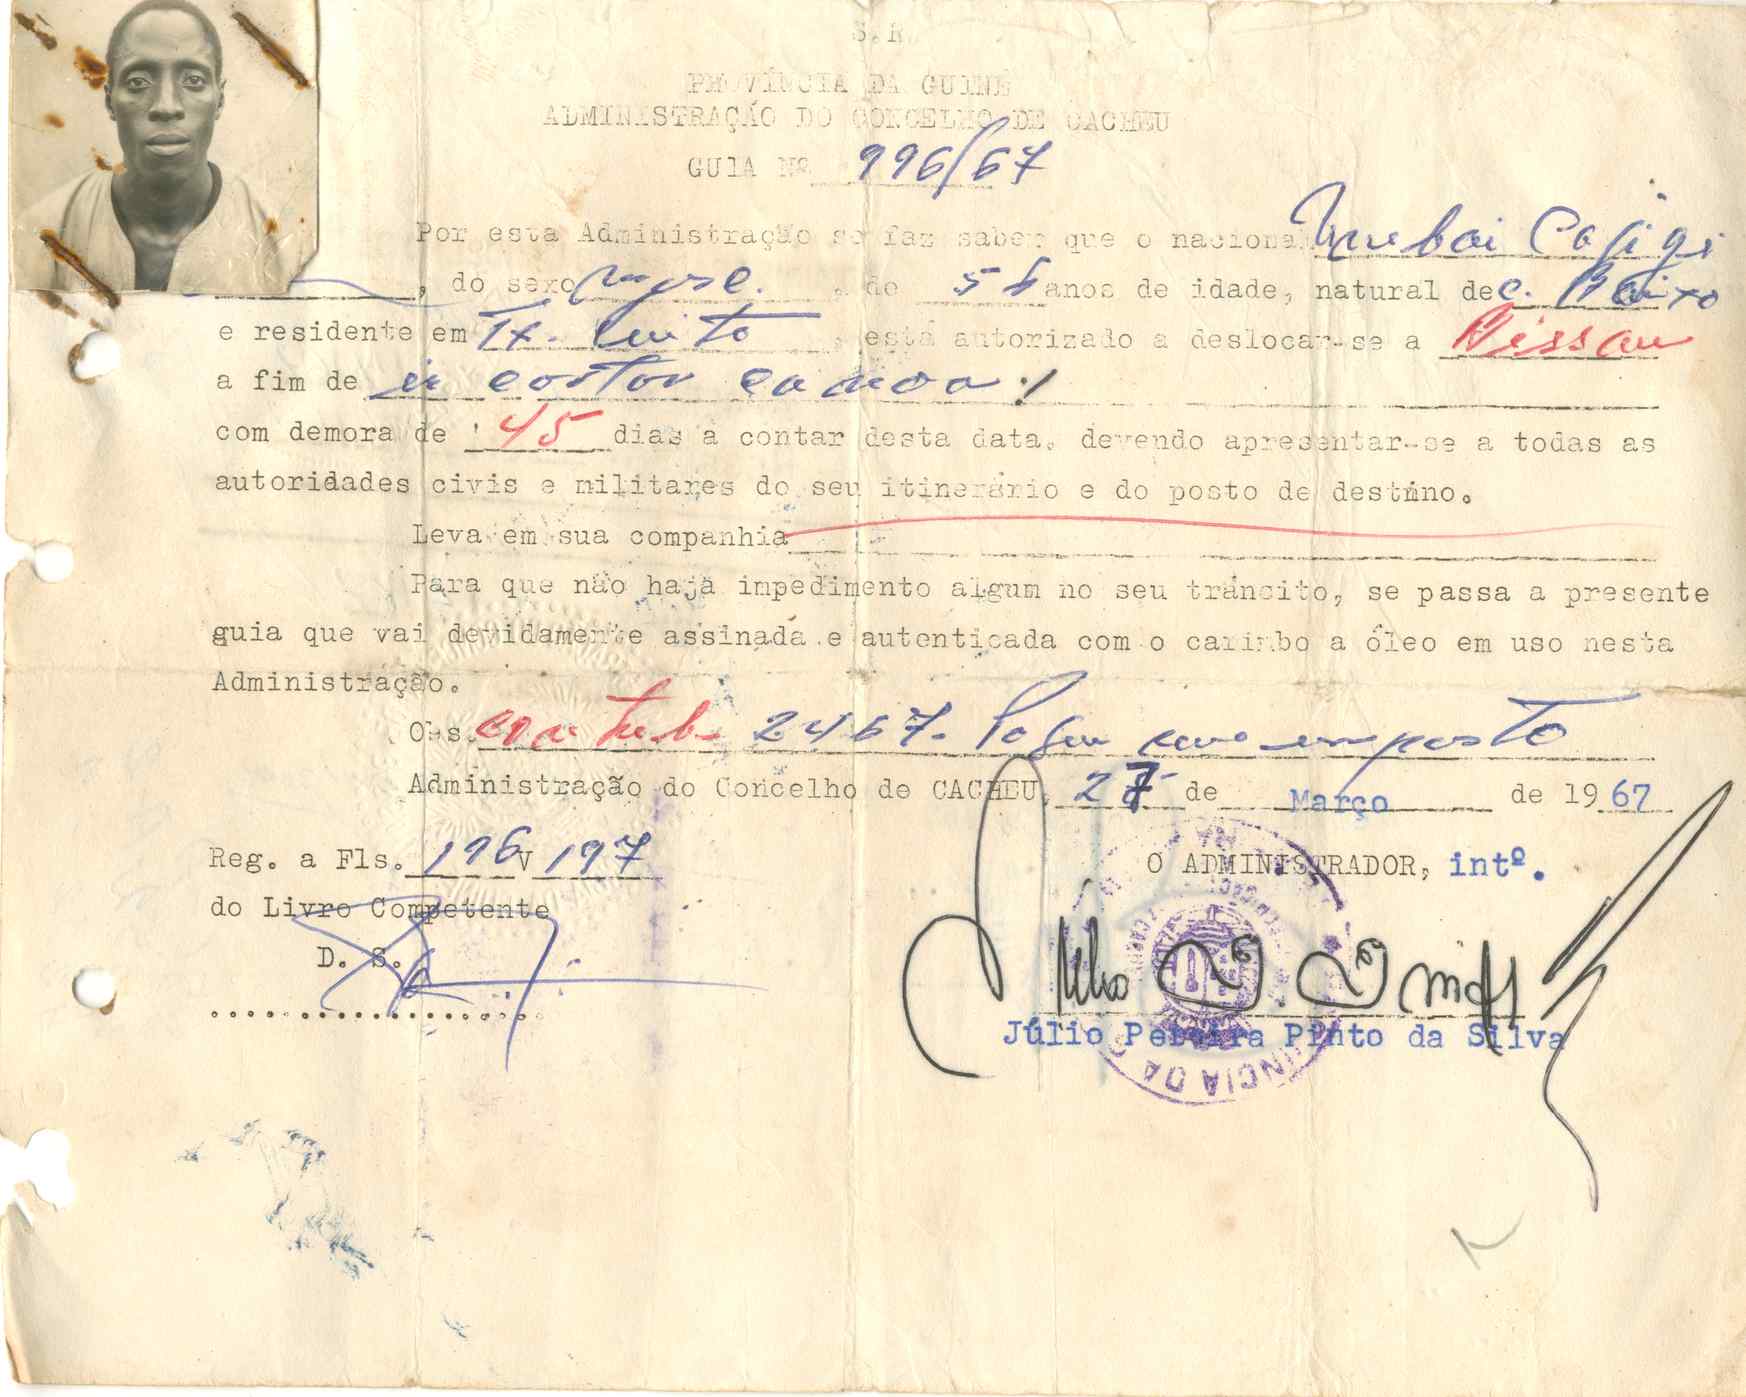 S. R.
PROVÍNCIA DA GUINÉ
ADMINISTRAÇÃO DO CONCELHO DE CACHEU
GUIA Nº 996/67
Por esta Administração se faz saber que o nacional
, do sexo masc. , de anos de idade, natural de C. Baixo
e residente em , está autorizado a deslocar-se a Bissau
a fim de ir cortar
com demora de 45 dias a contar desta data, devendo apresentar-se a todas as
autoridades civis e militares do seu itinerário e do posto de destino.
Leva em sua companhia
Para que não haja impedimento algum no seu trâncito, se passa a presente
guia que vai devidamente assinada e autenticada com o carimbo a óleo em uso nesta
Administração.
Obs. 2467. imposto
Administração do Concelho de CACHEU, 27 de Março de 1967
Reg. a Fls. 196 V 197
O ADMINISTRADOR, intº.
do Livro Competente
D. S.
Júlio Pereira Pinto da Silva